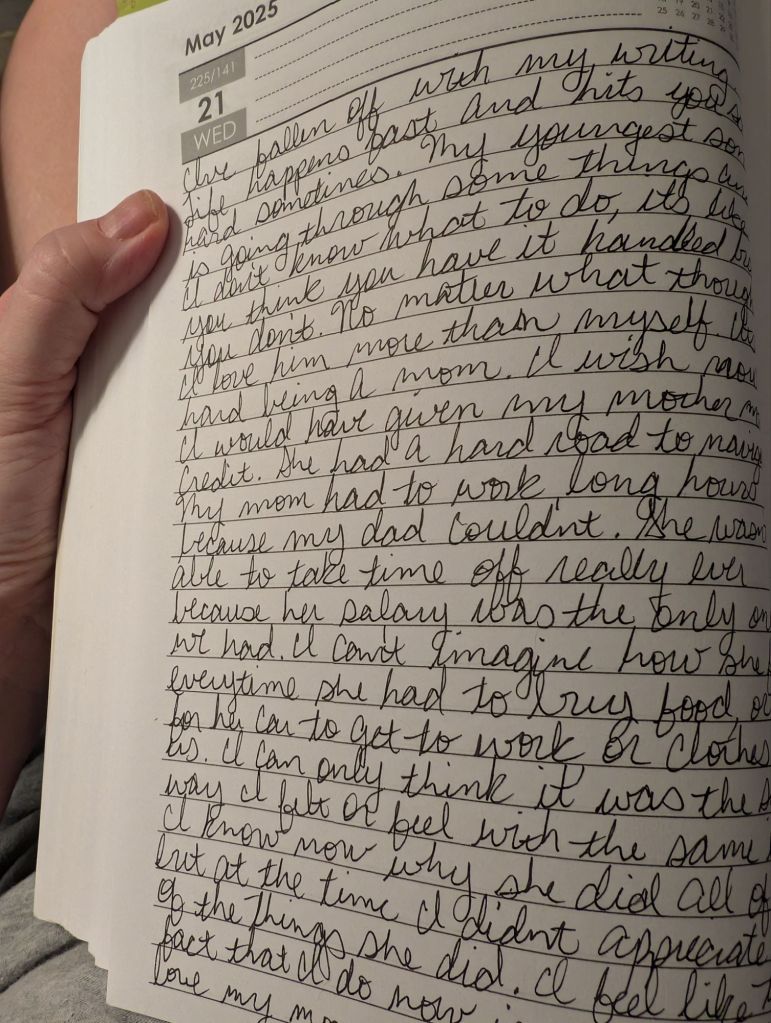 May 2025
225/141
21
WED
25 26 27 28
Ive fallen off with my writing
Life happens fast and hits you
hard sometimes. My youngest son
is going through some things
I don't know what to do, its like
you think you have it handled
you don't. No matter what
I love him more than myself. Its
hard being a mom. I wish now
I would have given my mother
credit. She had a hard road to
My mom had to work long hours
because my dad couldnt. She
able to take time off really ever
because her salary was the only
we had. I can't imagine how she
everytime she had to buy food,
for her car to get to work or clothes
I can only think it was the
way I felt or feel with the same
I know now why she did all of
but at the time I didnt appreciate
of the things she did. I feel like
fact that I do now
love my